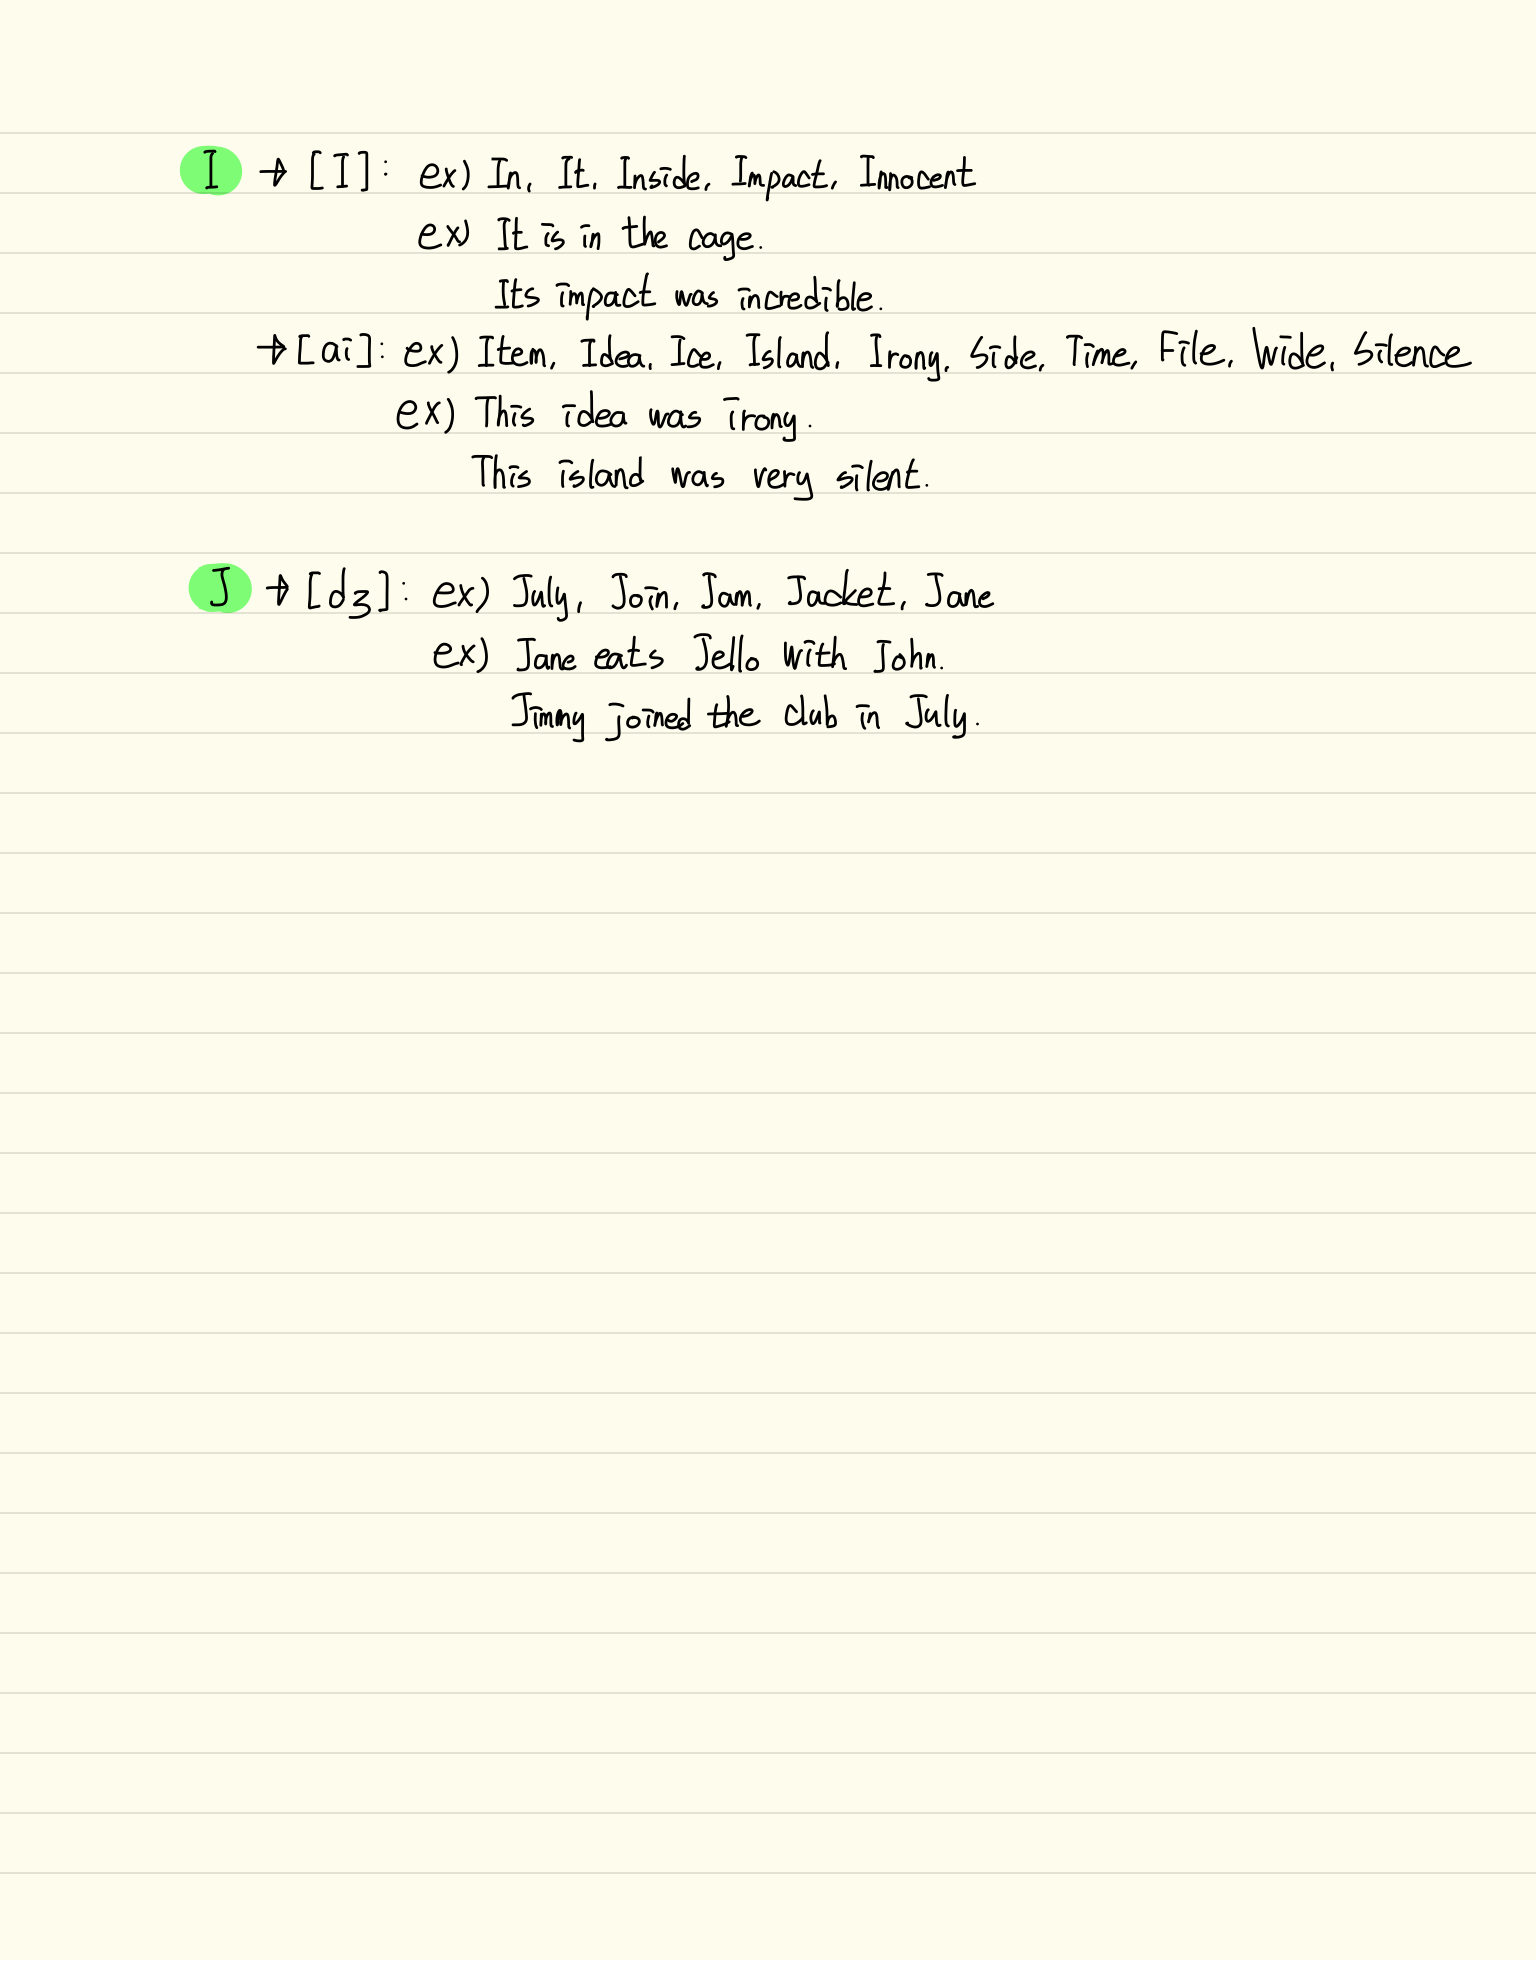 I → [I]: ex) In, It, Inside, Impact, Innocent
ex) It is in the cage.
Its impact was incredible.
→ [ai]: ex) Item, Idea, Ice, Island, Irony, Side, Time, File, Wide, Silence
ex) This idea was irony.
This island was very silent.
J → [dʒ]: ex) July, Join, Jam, Jacket, Jane
ex) Jane eats Jello with John.
Jimmy joined the club in July.